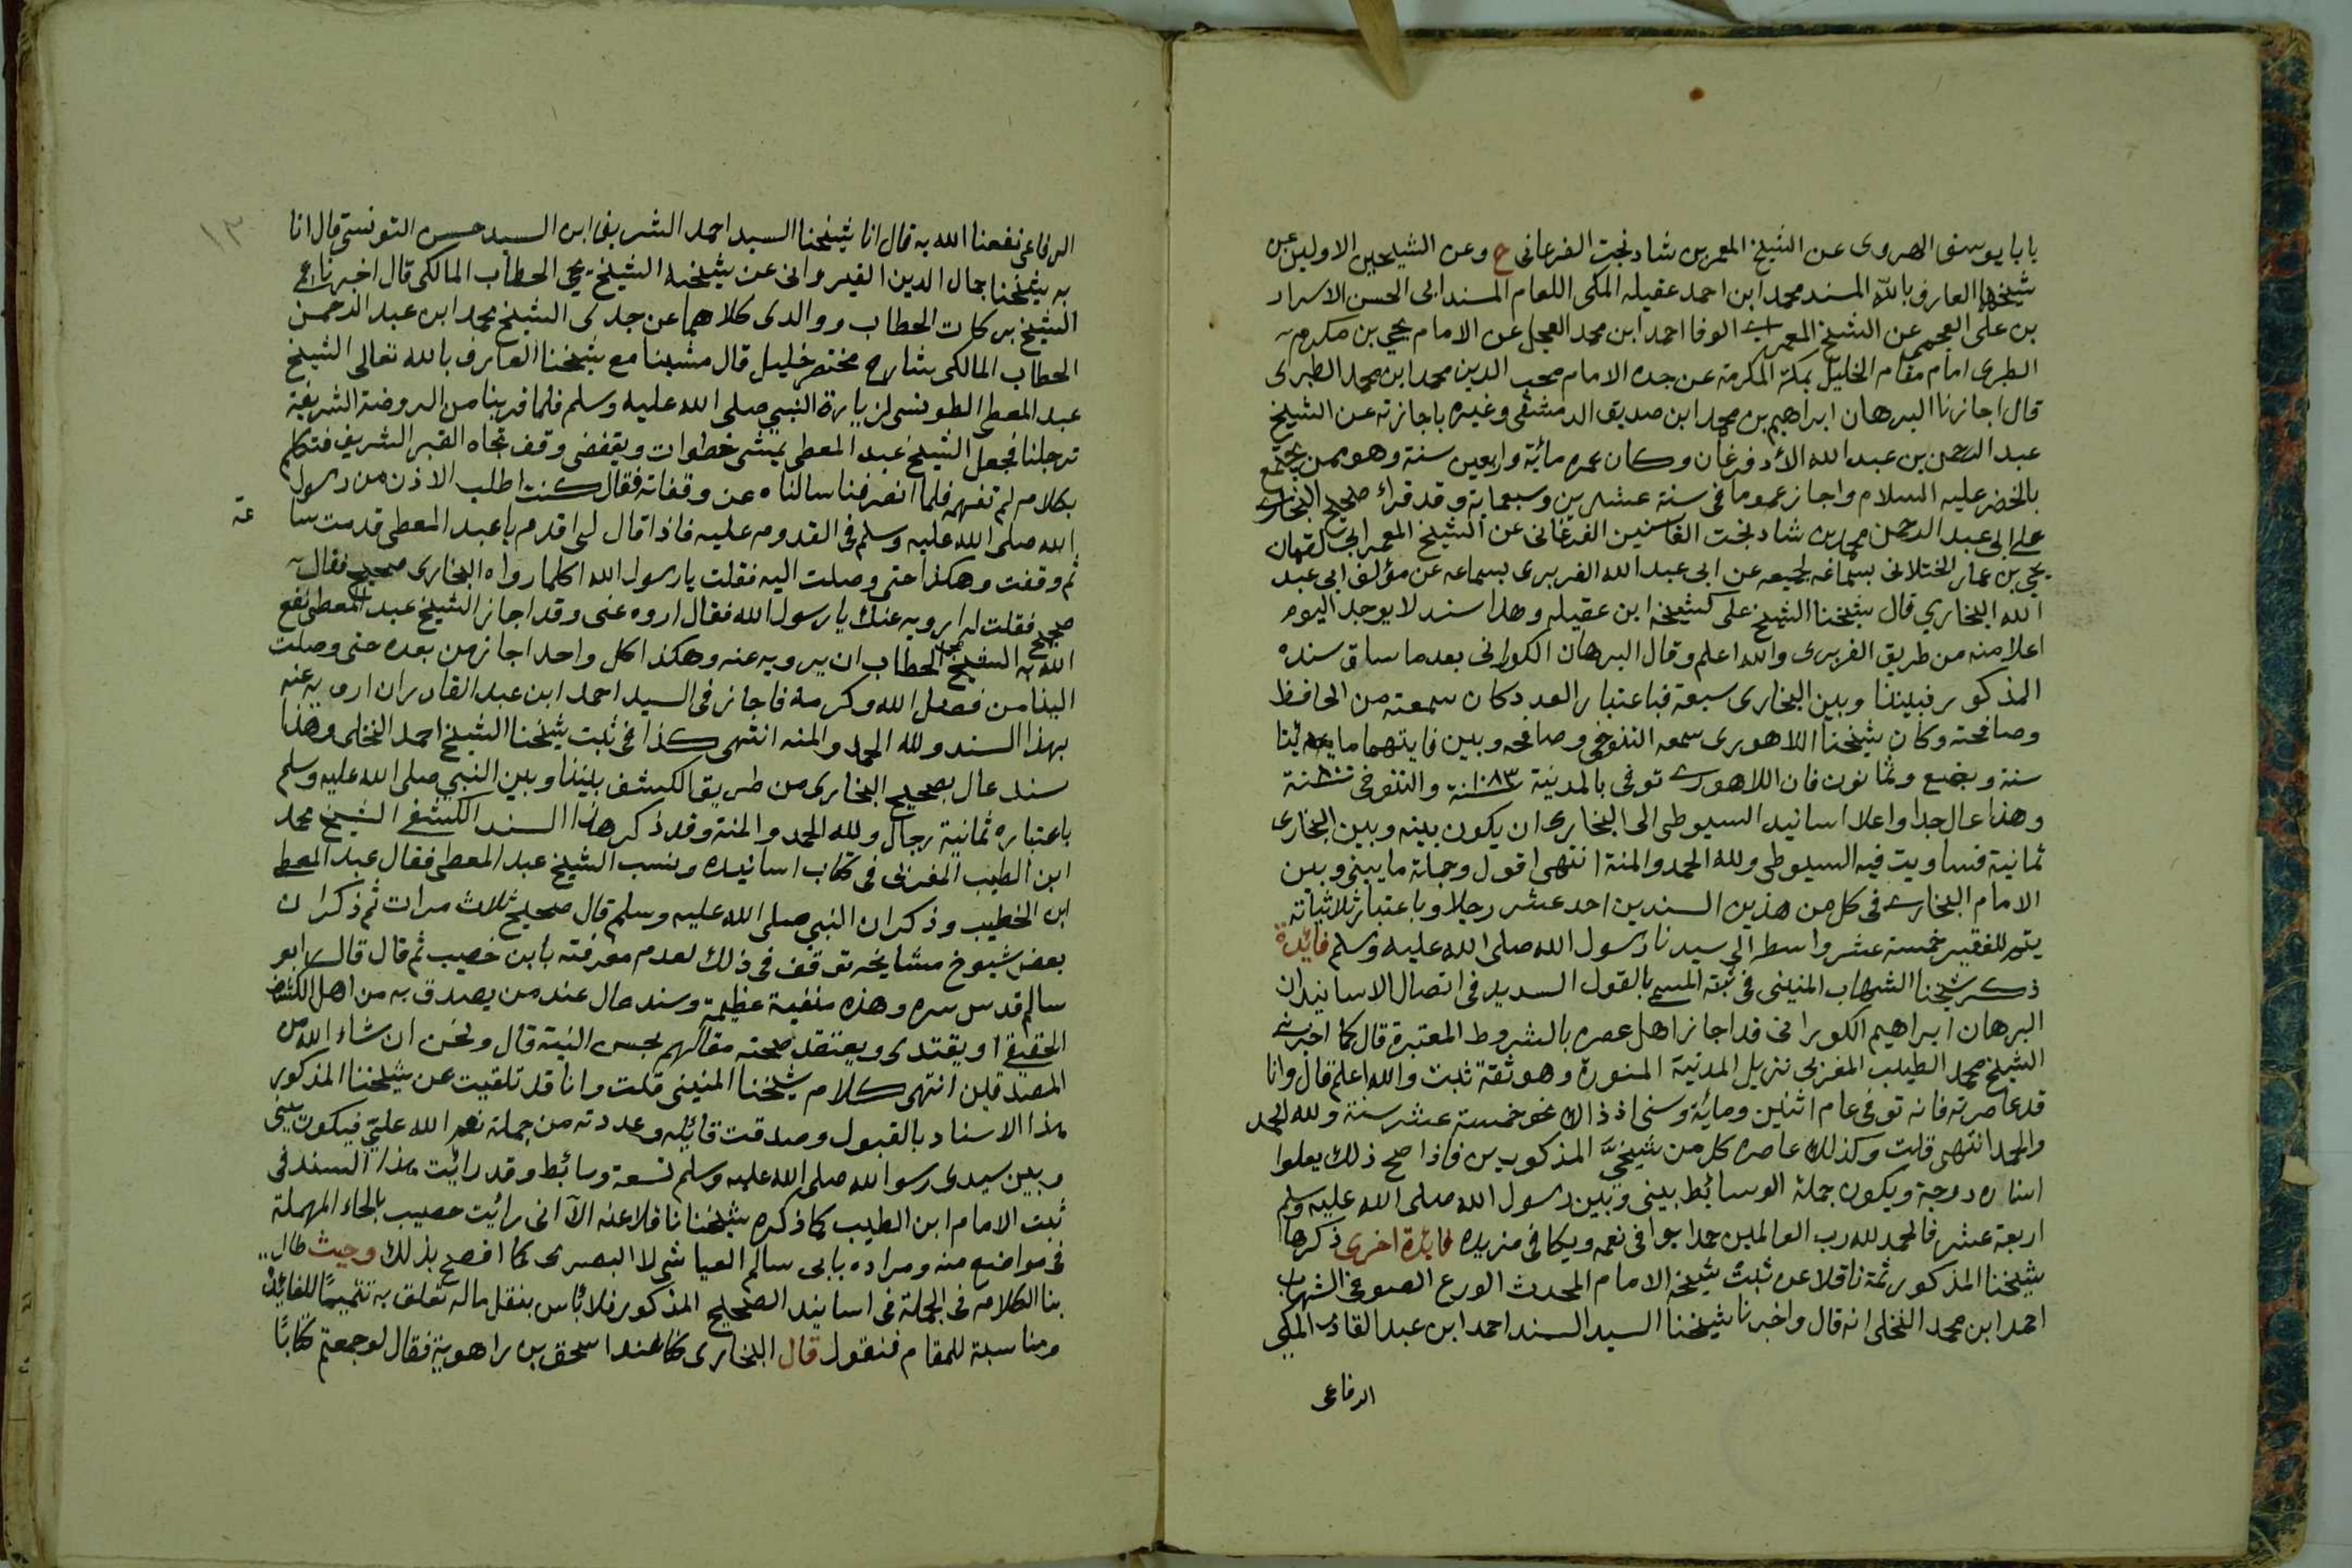 بابا يوسف الهروى عن الشيخ المعمر بن شاد بخت الفرغانى ح وعن الشيخين الاولين عن
شيخهما العارف بالله المسند محمد ابن احمد عقيله المكى اللعام المسند ابى الحسن الاسرار
بن على العجمى عن الشيخ المعمر ابى الوفا احمد ابن محمد العجل عن الامام يحيى بن مكرم
الطبرى امام مقام الخليل بمكة المكرمة عن جده الامام محب الدين محمد ابن محمد الطبرى
قال اجازنا البرهان ابراهيم بن محمد ابن صديق الدمشقى وغيره باجازته عن الشيخ
عبد الرحمن بن عبد الله الأدفرغان وكان عمره مائية واربعين سنة وهو ممن يجتمع
بالخضر عليه السلام واجاز عموما فى سنة عشرين وسبعماية وقد قراء صحيح البخارى
على ابى عبد الرحمن محمد بن شاد بخت الفاسنين الفرغانى عن الشيخ المعمر ابى لقمان
يحيى بن عمار الختلانى بسماعه لجميعه عن ابى عبد الله الفربرى بسماعه عن مؤلفه ابى عبد
الله البخاري قال شيخنا الشيخ على كشيخه ابن عقيله وهذا سند لا يوجد اليوم
اعلا منه من طريق الفربرى والله اعلم وقال البرهان الكورانى بعد ما ساق سنده
المذكور فبيننا وبين البخارى سبعة فباعتبار العدد كان سمعته من الحافظ
وصافحته وكان شيخنا اللاهورى سمعه التنوخى وصافحه وبين وفايتهما مايتا
سنة وبضع وثمانون فان اللاهورى توفى بالمدنية سنة ١٠٨٣ والتنوخى سنة
وهذا عال جدا واعلا اسانيد السيوطى الى البخارى ان يكون بينه وبين البخارى
ثمانية فساويت فيه السيوطى ولله الحمد والمنة انتهى اقول وجملة ما بينى وبين
الامام البخارى فى كل من هذين السندين احد عشر رجلا وباعتبار ثلاثياته
يتم للفقير خمسة عشر واسطه الى سيدنا رسول الله صلى الله عليه وسلم فائدة
ذكر شيخنا الشهاب المنينى فى ثبته المسمى بالقول السديد فى اتصال الاسانيد ان
البرهان ابراهيم الكورانى قد اجاز اهل عصره بالشروط المعتبرة قال كما اخبرنى
الشيخ محمد الطيب المغربى نزيل المدنية المنورة وهو ثقة ثبت والله اعلم قال وانا
قد عاصرته فانه توفى عام اثنين ومائية وسنى اذ ذاك نحو خمسة عشر سنة ولله الحمد
والحمد انتهى قلت وكذلك عاصره كل من شيخىّ المذكورين فاذا صح ذلك يعلوا
اسناده درجة ويكون جملة الوسائط بينى وبين رسول الله صلى الله عليه وسلم
اربعة عشر فالحمد لله رب العالمين حمدا يوافى نعمه ويكافى مزيده فائدة اخرى ذكرها
شيخنا المذكور ثمة ناقلا عن ثبت شيخه الامام المحدث الورع الصوفى الشهاب
احمد ابن محمد النخلى انه قال واخبرنا شيخنا السيد السند احمد ابن عبد القادر المكى
الرفاعى
١٣
الرفاعى نفعنا الله به قال انا شيخنا السيد احمد الشريف ابن السيد حسن التونسى قال انا
به شيخنا جمال الدين القيروانى عن شيخه الشيخ يحيى الحطاب المالكى قال اخبرنا عمى
الشيخ بركات الحطاب ووالدى كلاهما عن جدى الشيخ محمد ابن عبد الرحمن
الحطاب المالكى شارح مختصر خليل قال مشينا مع شيخنا العارف بالله تعالى الشيخ
عبد المعطى الطونسى لزيارة النبى صلى الله عليه وسلم فلما قربنا من الروضة الشريفة
ترجلنا فجعل الشيخ عبد المعطى يمشى خطوات ويقف حتى وقف تجاه القبر الشريف فتكلم
بكلام لم نفهمه فلما انصرفنا سالناه عن وقفاته فقال كنت اطلب الاذن من رسول
الله صلى الله عليه وسلم فى القدوم عليه فاذا قال لى اقدم يا عبد المعطى قدمت سا عة
ثم وقفت وهكذا حتى وصلت اليه فقلت يا رسول الله اكلما رواه البخارى صحيح فقال
صحيح فقلت له ارويه عنك يا رسول الله فقال اروه عنى وقد اجاز الشيخ عبد المعطى نفع
الله به الشيخ محمد الحطاب ان يرويه عنه وهكذا كل واحد اجاز من بعده حتى وصلت
الينا من فضل الله وكرمه فاجازنى السيد احمد ابن عبد القادر ان ارويه عنه
بهذا السند ولله الحمد والمنه انتهى كذا فى ثبت شيخنا الشيخ احمد النخلى وهذا
سند عال بصحيح البخارى من طريق الكشف بيننا وبين النبى صلى الله عليه وسلم
باعتباره ثمانية رجال ولله الحمد والمنة وقد ذكر هذا السند الكشفى الشيخ محمد
ابن الطيب المغربى فى كتاب اسانيده ونسب الشيخ عبد المعطى فقال عبد المعطى
ابن الخطيب وذكر ان النبى صلى الله عليه وسلم قال صحيح ثلاث مرات ثم ذكر ان
بعض شيوخ مشايخه توقف فى ذلك لعدم معرفته بابن خصيب ثم قال قال ابو
سالم قدس سره وهذه منقبة عظيمة وسند عال عند من يصدق به من اهل الكشف
الحقيقى او يقتدى ويعتقد صحته مقالهم بحسن النية قال ونحن ان شاء الله من
المصدقين انتهى كلام شيخنا المنينى قلت وانا قد تلقيت عن شيخنا المذكور
هذا الاسناد بالقبول وصدقت قائله وعددته من جملة نعم الله علىّ فيكون بينى
وبين سيدى رسول الله صلى الله عليه وسلم تسعة وسائط وقد رائيت هذا السند فى
ثبت الامام ابن الطيب كما ذكره شيخنا ناقلا عنه الآ انى رائيت حصيب بالحاء المهملة
فى مواضع منه ومراده بابى سالم العياشى لا البصرى كما افصح بذلك وحيث طال
بنا الكلام فى الجملة فى اسانيد الصحيح المذكور فلا بأس بنقل ماله تعلق به تتميمًا للفائدة
ومناسبة للمقام فنقول قال البخارى كنا عند اسحق بن راهوية فقال لو جمعتم كتابًا